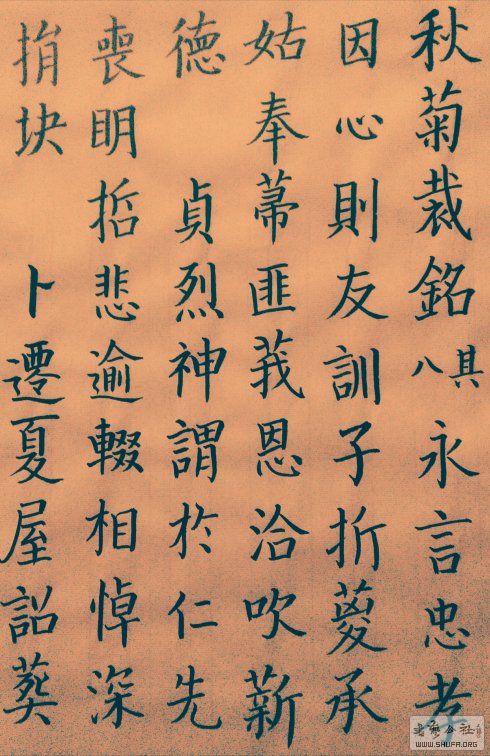 秋菊裁銘其八永言忠孝
因心則友訓子折葼承
姑奉菷匪莪恩洽吹薪
德貞烈神謂於仁先
喪明哲悲逾輟相悼深
捐玦卜遷夏屋詔葬
WWW.SHUFA.ORG